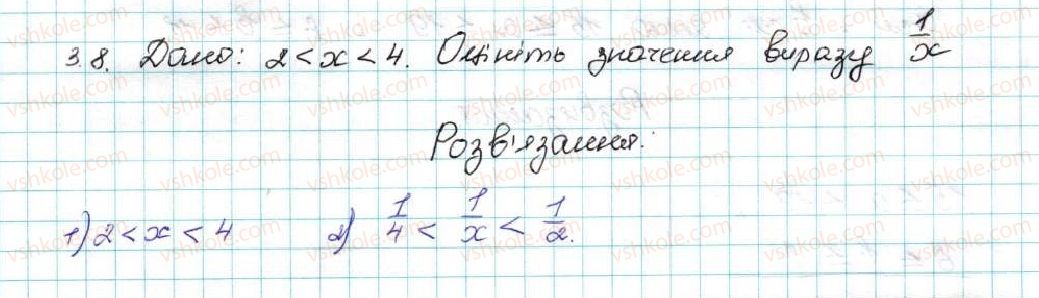 3.8. Дано: 2 < x < 4. Оцініть значення виразу 1/x
Розв'язання.
1) 2 < x < 4 2) 1/4 < 1/x < 1/2.